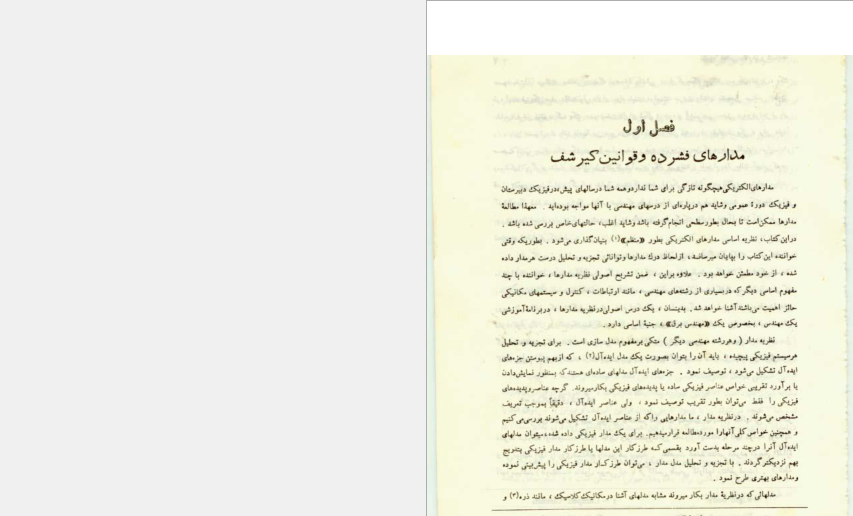 فصل اول
مدارهای فشرده و قوانین کیرشف
مدارهای الکتریکی هیچگونه تازگی برای شما ندارد و همه شما در سالهای پیش در فیزیک دبیرستان
و فیزیک دورهٔ عمومی و شاید هم در پاره‌ای از درسهای مهندسی با آنها مواجه بوده‌اید . معهذا مطالعهٔ
مدارها ممکن است تا بحال بطور سطحی انجام گرفته باشد و شاید اغلب، حالتهای خاص بررسی شده باشد .
در این کتاب، نظریه اساسی مدارهای الکتریکی بطور «منظم»(۱) بنیان گذاری می‌شود . بطوریکه وقتی
خواننده این کتاب را بپایان میرساند ، از لحاظ درک مدارها و توانائی تجزیه و تحلیل درست هر مدار داده
شده ، از خود مطمئن خواهد بود . علاوه براین ، ضمن تشریح اصولی نظریه مدارها ، خواننده با چند
مفهوم اساسی دیگر که در بسیاری از رشته‌های مهندسی ، مانند ارتباطات ، کنترل و سیستمهای مکانیکی
حائز اهمیت می‌باشند آشنا خواهد شد . بدینسان ، یک درس اصولی در نظریه مدارها ، در برنامهٔ آموزشی
یک مهندس ، بخصوص یک «مهندس برق» ، جنبهٔ اساسی دارد .
نظریه مدار ( و هر رشته مهندسی دیگر ) متکی بر مفهوم مدل سازی است . برای تجزیه و تحلیل
هر سیستم فیزیکی پیچیده ، باید آن را بتوان بصورت یک مدل ایده‌آل(۲) ، که از بهم پیوستن جزءهای
ایده‌آل تشکیل می‌شود ، توصیف نمود . جزءهای ایده‌آل مدلهای ساده‌ای هستند که بمنظور نمایش دادن
یا برآورد تقریبی خواص عناصر فیزیکی ساده یا پدیده‌های فیزیکی بکار میروند. گرچه عناصر و پدیده‌های
فیزیکی را فقط می‌توان بطور تقریب توصیف نمود ، ولی عناصر ایده‌آل ، دقیقاً بموجب تعریف
مشخص می‌شوند . در نظریه مدار ، ما مدارهایی را که از عناصر ایده‌آل تشکیل می‌شوند بررسی می‌کنیم
و همچنین خواص کلی آنها را مورد مطالعه قرار میدهیم. برای یک مدار فیزیکی داده شده ، میتوان مدلهای
ایده‌آل آنرا در چند مرحله بدست آورد بقسمی که طرز کار این مدلها با طرز کار مدار فیزیکی بتدریج
بهم نزدیکتر گردند . با تجزیه و تحلیل مدل مدار ، می‌توان طرز کار مدار فیزیکی را پیش‌بینی نموده
و مدارهای بهتری طرح نمود .
مدلهائی که در نظریهٔ مدار بکار میروند مشابه مدلهای آشنا در مکانیک کلاسیک ، مانند ذره(۳) و